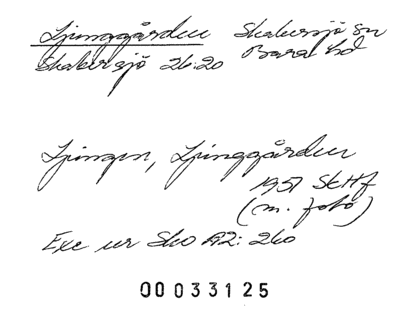 Ljunggården Skabersjö sn
Skabersjö 26:20 Bara hd
Ljungen, Ljunggården
1957 SkHf
(m. foto)
Exc ur Sko A2: 260
00033125